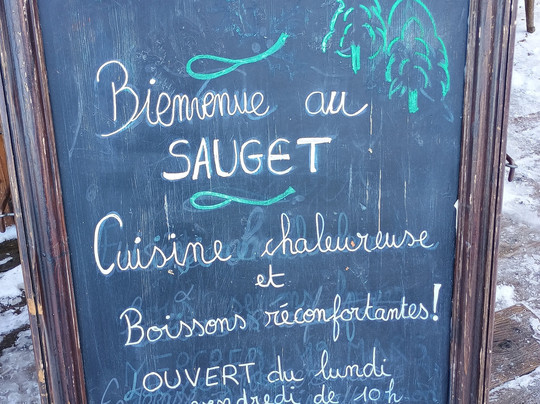 Bienvenue au
SAUGET
Cuisine chaleureuse
et
Boissons réconfortantes!
OUVERT du lundi
vendredi de 10h